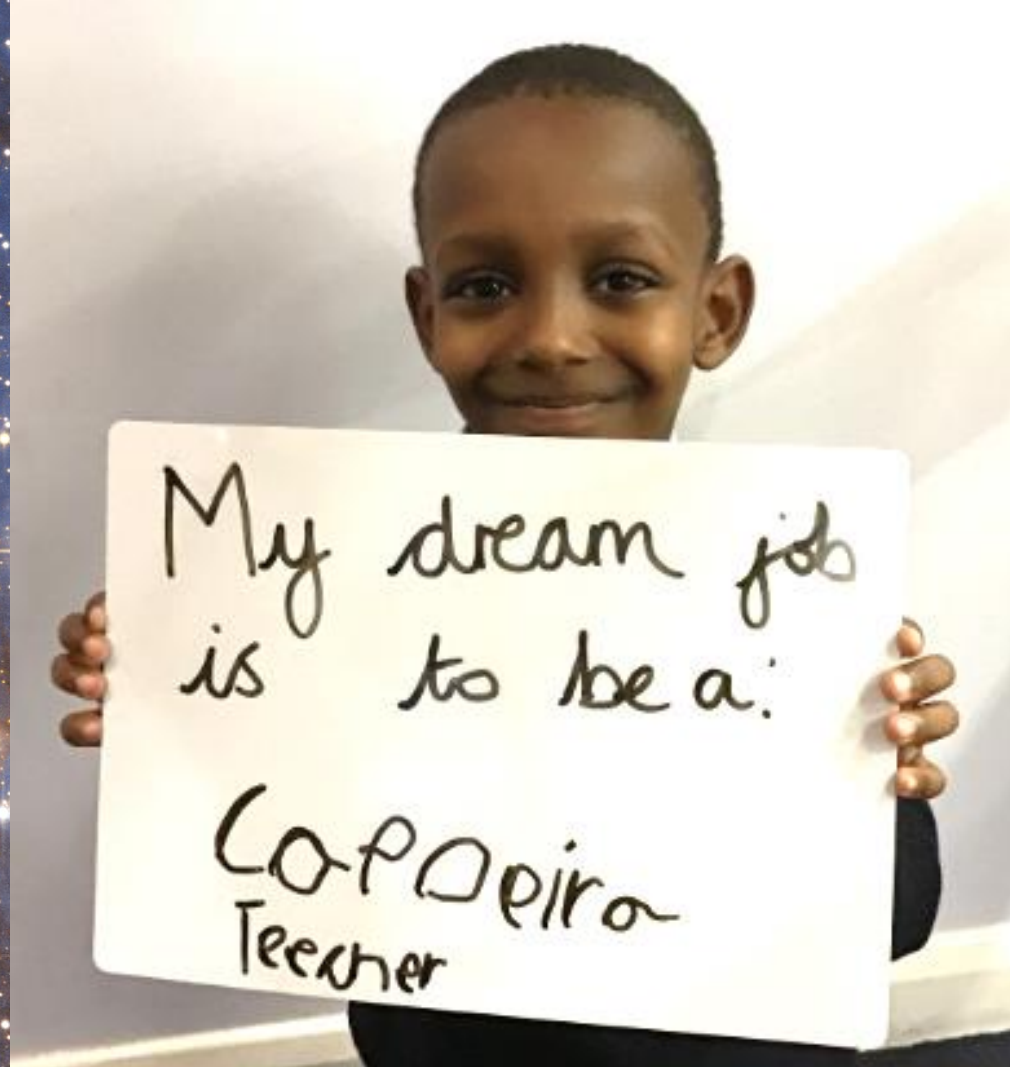 My dream job
is to be a:
Capoeira
Teecher